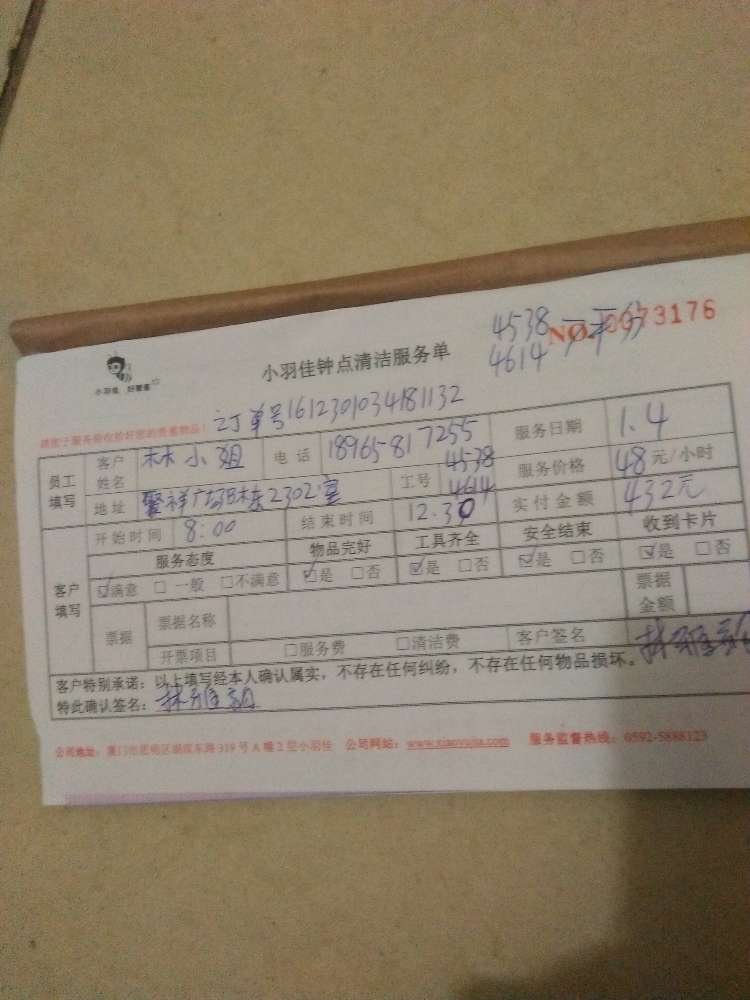 4538
NO.0073176
4614 平分
小羽佳钟点清洁服务单
小羽佳 好管家
订单号1612301034181132
员工填写 客户姓名 林小姐 电话 18965817255 服务日期 1.4
地址 聚祥广场B栋2302室 工号 4538 4614 服务价格 48元/小时
客户填写 开始时间 8:00 结束时间 12:30 实付金额 432元
服务态度 物品完好 工具齐全 安全结束 收到卡片
☑满意 □一般 □不满意 ☑是 □否 ☑是 □否 ☑是 □否 ☑是 □否
票据 票据名称 票据金额
开票项目 □服务费 □清洁费 客户签名
客户特别承诺：以上填写经本人确认属实，不存在任何纠纷，不存在任何物品损坏。
特此确认签名：林雅
公司地址：厦门市思明区湖滨东路319号A幢2层小羽佳 公司网站：www.xiaoyujia.com 服务监督热线：0592-5888123